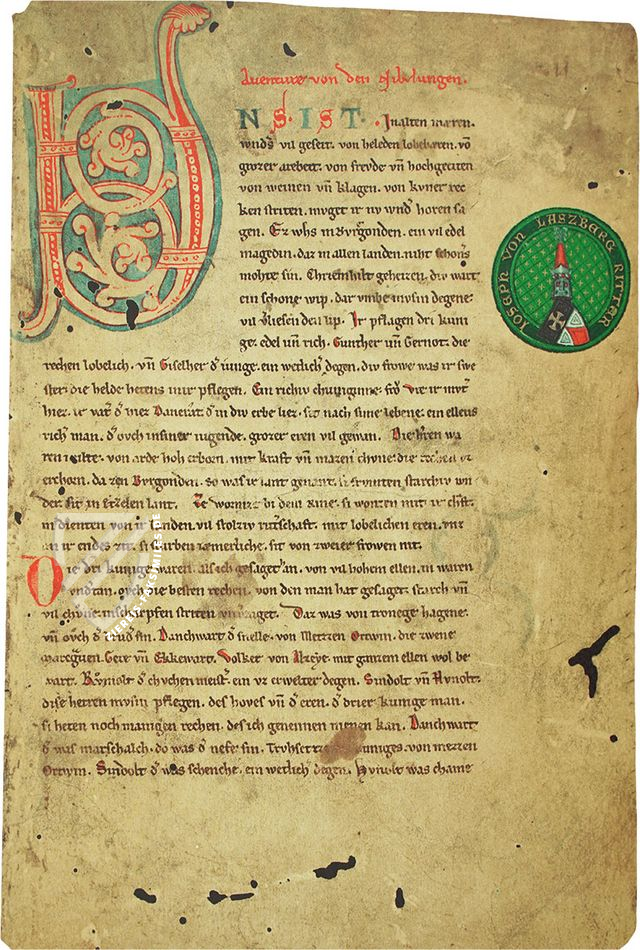 Auenture von den Nibelungen.
VNS. IST. In alten mæren.
wnds vil geseit. von heleden lobebæren. vō
grozer arebeit. von frevde vn̄ hochgeciten
von weinen vn̄ klagen. von kvner rec
ken striten. mvget ir nv wnd horen sa
gen. Ez whs in Bvrgonden. ein vil edel
magedin. daz in allen landen. niht schoners
mohte sin. Chriemhilt geheizen. div wart
ein schone wip. dar vmbe mvsin degene.
vil vliesen den lip. Ir pflagen dri kuni
ge. edel vn̄ rich. Gunther vn̄ Gernot. die
rechen lobelich. vn̄ Giselher d iunge. ein wetlich degen. div frowe was ir swe
ster. die helde hetens inir pflegen. Ein richiv chuniginne. fro Vte ir mvt
hiez. ir vater d hiez Dancrat. d in div erbe liez. sit nach sime lebene. ein ellens
rich man. d ovch in siner iugende. grozer eren vil gewan. Die herren wa
ren milte. von arde hoh erborn. mit kraft vn̄ mazen chvne. die rechen vz
erchorn. da zen Bvrgonden. so was ir lant genant. si frvmten starchiv wn
der. sit in Etzelen lant. Ze wormze bi dem Rine. si wonten mit ir chrft.
in dienten von ir landen. vil stolziv ritschaft. mit lobelichen eren. vnz
an ir endes zit. si sturben iæmerliche. sit von zweier frowen nit.
Die dri kunige waren. als ich gesaget han. von vil hohem ellen. in waren
vndertan. ovch die besten rechen. von den man hat gesaget. starch vn̄
vil chvne. in scharpfen striten vnverzaget. Daz was von tronege hagene.
vn̄ ovch d brud sin. Danchwart d snelle. von Metzen Ortwin. die zwene
marcgven. Gere vn̄ Ekkewart. Volker von Alzeye. mit ganzem ellen wol be
wart. Rvmolt d chvchen meist. ein vz erwelter degen. Sindolt vn̄ Hvnolt.
dise herren mvsin pflegen. des hoves vn̄ d eren. d drier kunige man.
si heten noch manigen rechen. des ich genennen nienen kan. Danchwart
d was marschalch. do was d nefe sin. Trvhsetze des kuniges. von Metzen
Ortwin. Sindolt d was schenche. ein wetlich degen. Hvnolt was chame
IOSEPH VON LASZBERG RITTER